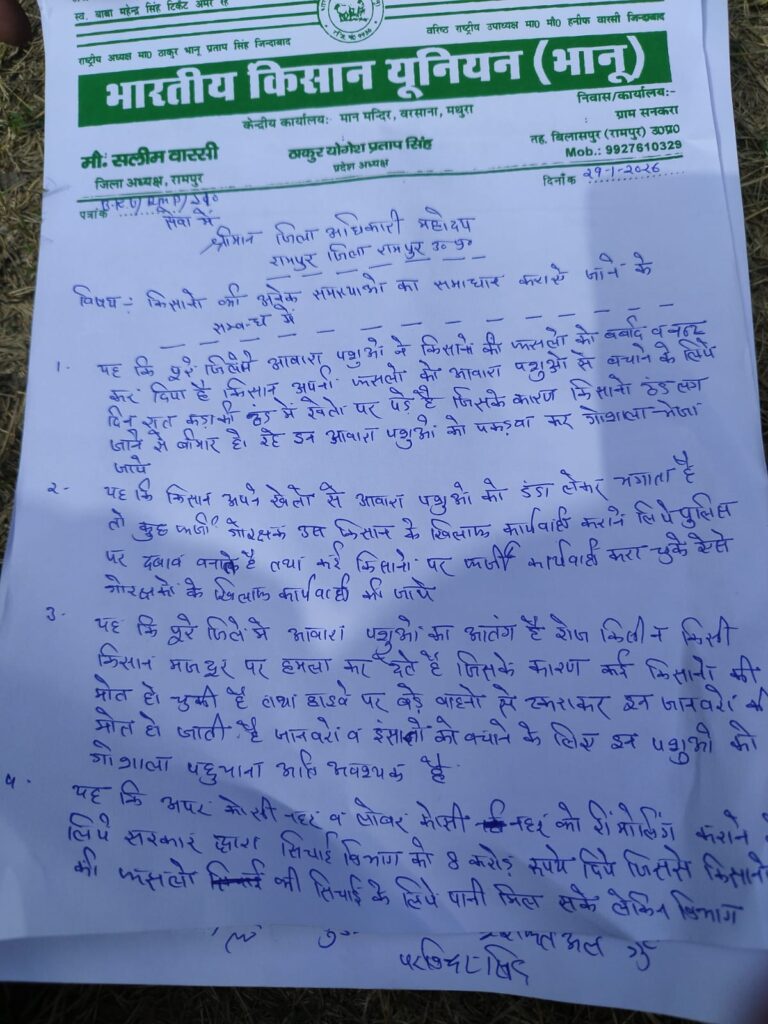 स्व. बाबा महेन्द्र सिंह टिकैत अमर रहे
राष्ट्रीय अध्यक्ष मा0 ठाकुर भानु प्रताप सिंह जिन्दाबाद
वरिष्ठ राष्ट्रीय उपाध्यक्ष मा0 मौ0 हनीफ वारसी जिन्दाबाद
भारतीय किसान यूनियन (भानू)
केन्द्रीय कार्यालयः- मान मन्दिर, वरसाना, मथुरा
निवास/कार्यालयः-
ग्राम सनकरा
तह. बिलासपुर (रामपुर) उ0प्र0
Mob.: 9927610329
मौ. सलीम वारसी
जिला अध्यक्ष, रामपुर
ठाकुर योगेश प्रताप सिंह
प्रदेश अध्यक्ष
पत्रांक
दिनाँक 29-1-2026
सेवा में
श्रीमान जिला अधिकारी महोदय
रामपुर जिला रामपुर उ० प्र०
विषय:- किसानो की अनेक समस्याओ का समाधान कराये जाने के
सम्बन्ध में
1. यह कि पूरे जिले मे आवारा पशुओं ने किसानो की फसलो को बर्बाद व नष्ट
कर दिया है किसान अपनी फसलो को आवारा पशुओं से बचाने के लिये
दिन रात कड़ाकी ठंड में खेतो पर पड़े है जिसके कारण किसानो ठंड लग
जाने से बीमार हो रहे इन आवारा पशुओं को पकड़वा कर गोशाला भेजा
जाये
2- यह कि किसान अपने खेतों से आवारा पशुओं को डंडा लेकर भगाता है
तो कुछ फर्जी गोरक्षक उस किसान के खिलाफ कार्यवाही कराने लिये पुलिस
पर दबाव बनाते है तथा कई किसानो पर फर्जी कार्यवाही करा चुके ऐसे
गोरक्षको के खिलाफ कार्यवाही की जाये
3- यह कि पूरे जिले मे आवारा पशुओं का आतंग है रोज किसी न किसी
किसान मजदूर पर हमला कर देते है जिसके कारण कई किसानो की
मोत हो चुकी है तथा हाइवे पर बड़े वाहनो से टकराकर इन जानवरो की
मोत हो जाती है जानवरो व इंसानो को बचाने के लिए इन पशुओं को
गोशाला पहुचाना अति अवश्यक है
4. यह कि अपर कोसी नहर व लोवर कोसी नहर को कराने के
लिये सरकार द्वारा सिचाई विभाग को 8 करोड़ रूपये दिये जिससे किसानो
की फसलो की सिचाई के लिये पानी मिल सके लेकिन विभाग